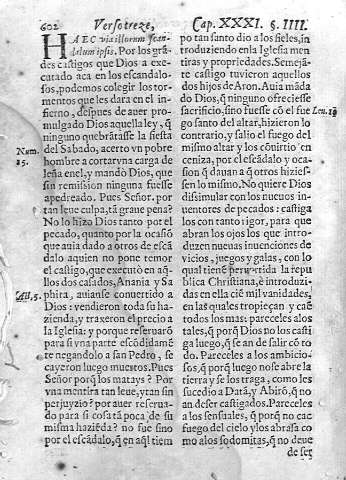 602
Verso treze,
Cap. XXXI. §. IIII.
HAEC via illorum scan-
dalum ipsis. Por los grã-
des castigos que Dios a exe-
cutado aca en los escandalo-
sos, podemos colegir los tor-
mentos que les dara en el in-
fierno, despues de auer pro-
mulgado Dios aquella ley, q̃
ninguno quebrãtasse la fiesta
del Sabado, acerto vn pobre
Num.
hombre a cortar vna carga de
15.
leña en el, y mandò Dios, que
sin remission ninguna fuesse
apedreado. Pues Señor. por
tan leue culpa, tã graue pena?
No lo hizo Dios tanto por el
pecado, quanto por la ocasiõ
que auia dado a otros de escã-
dalo aquien no pone temor
el castigo, que executò en aq̃-
llos dos casados, Anania y Sa-
Act. 5.
phira, auianse conuertido a
Dios: vendieron toda su ha-
zienda, y traxeron el precio a
la Iglesia: y porque reseruarõ
para si vna parte escõdidamẽ
te negandolo a san Pedro, se
cayeron luego muertos. Pues
Señor porq̃ los matays? Por
vna mentira tan leue, y tan sin
perjuyzio? por auer reserua-
do para si cosa tã poca de su
misma haziẽda? no fue sino
por el escãdalo, q̃ en aq̃l tiem
po tan santo dio a los fieles, in
troduziendo en la Iglesia men
tiras y propriedades. Semejã-
te castigo tuvieron aquellos
dos hijos de Aron. Auia mãda
do Dios, q̃ ninguno ofreciesse
sacrificio, sino fuesse cõ el fue
Leu. 10
go santo del altar, hizieron lo
contrario, y salio el fuego del
mismo altar y los cõuirtio en
ceniza, por el escãdalo y ocas-
ion q̃ dauan a q̃ otros hizies-
sen lo mismo. No quiere Dios
dissimular con los nueuos inu
entores de pecados: castiga
los con tanto rigor, para que
abran los ojos los que intro-
duzen nueuas inuenciones de
vicios, juegos y galas, con lo
qual tienẽ pervertida la repu
blica Christiana, è introduzi-
das en ella ciẽ mil vanidades,
en las quales tropieçan, y caẽ
todos los mas: pareceles a los
tales, q̃ porq̃ Dios no les casti
ga luego, q̃ se an de salir cõ to
do. Pareceles a los ambicio-
sos, q̃ porq̃ luego no se abre la
tierra y se los traga, como les
sucedio a Datã, y Abirõ, q̃ no
an de ser castigados. Pareceles
a los sensuales, q̃ porq̃ no cae
fuego del cielo y los abrasa co
mo a los sodomitas, q̃ no deue
de ser